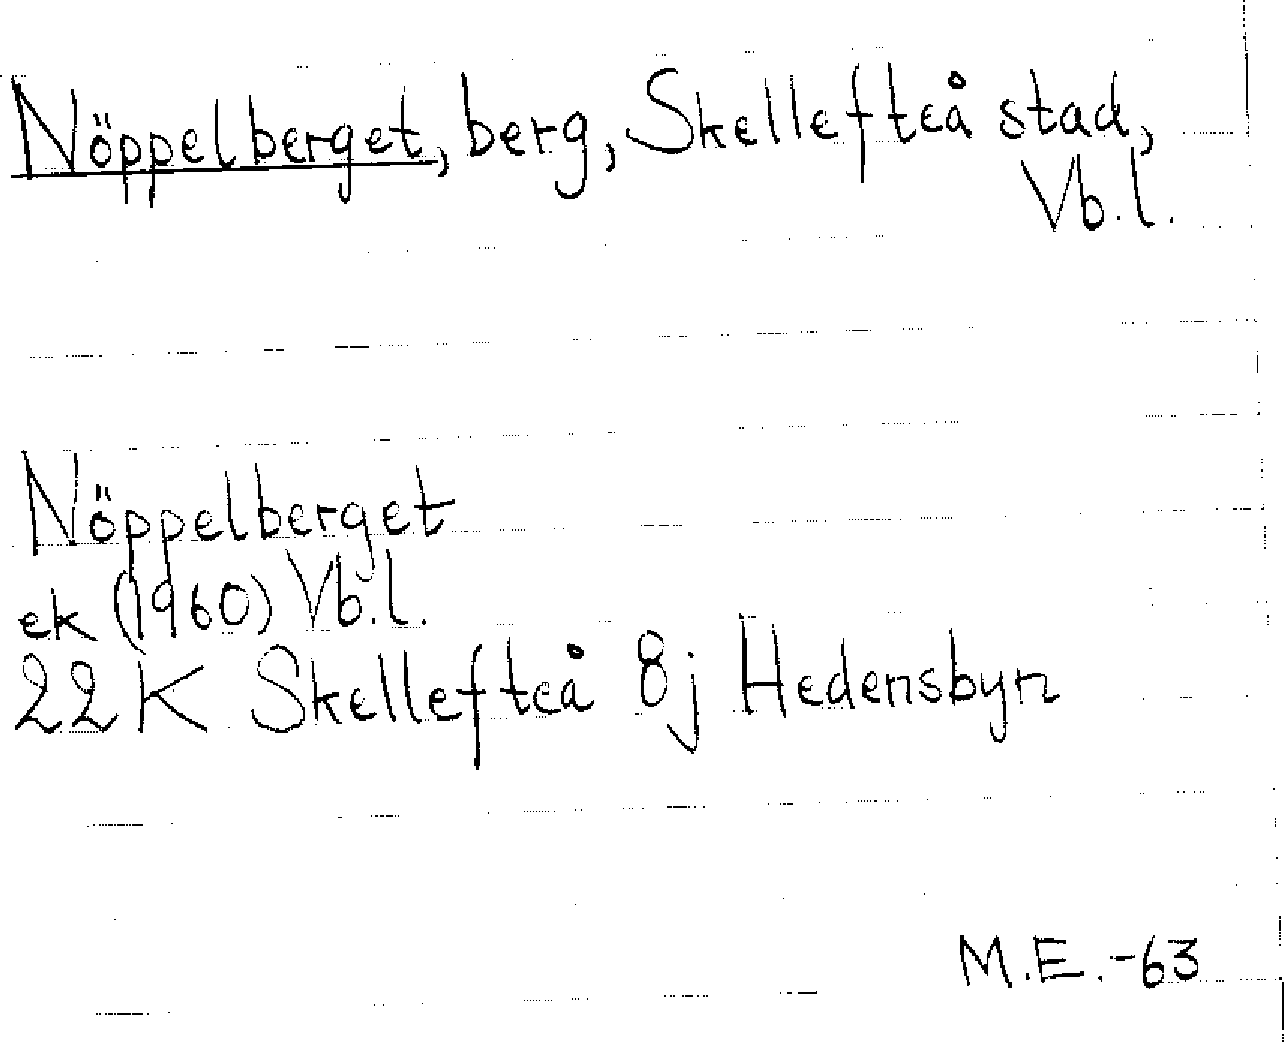 Nöppelberget, berg, Skellefteå stad,
Vb.l.
Nöppelberget
ek (1960) Vb.l.
22K Skellefteå 8j Hedensbyn
M.E.-63